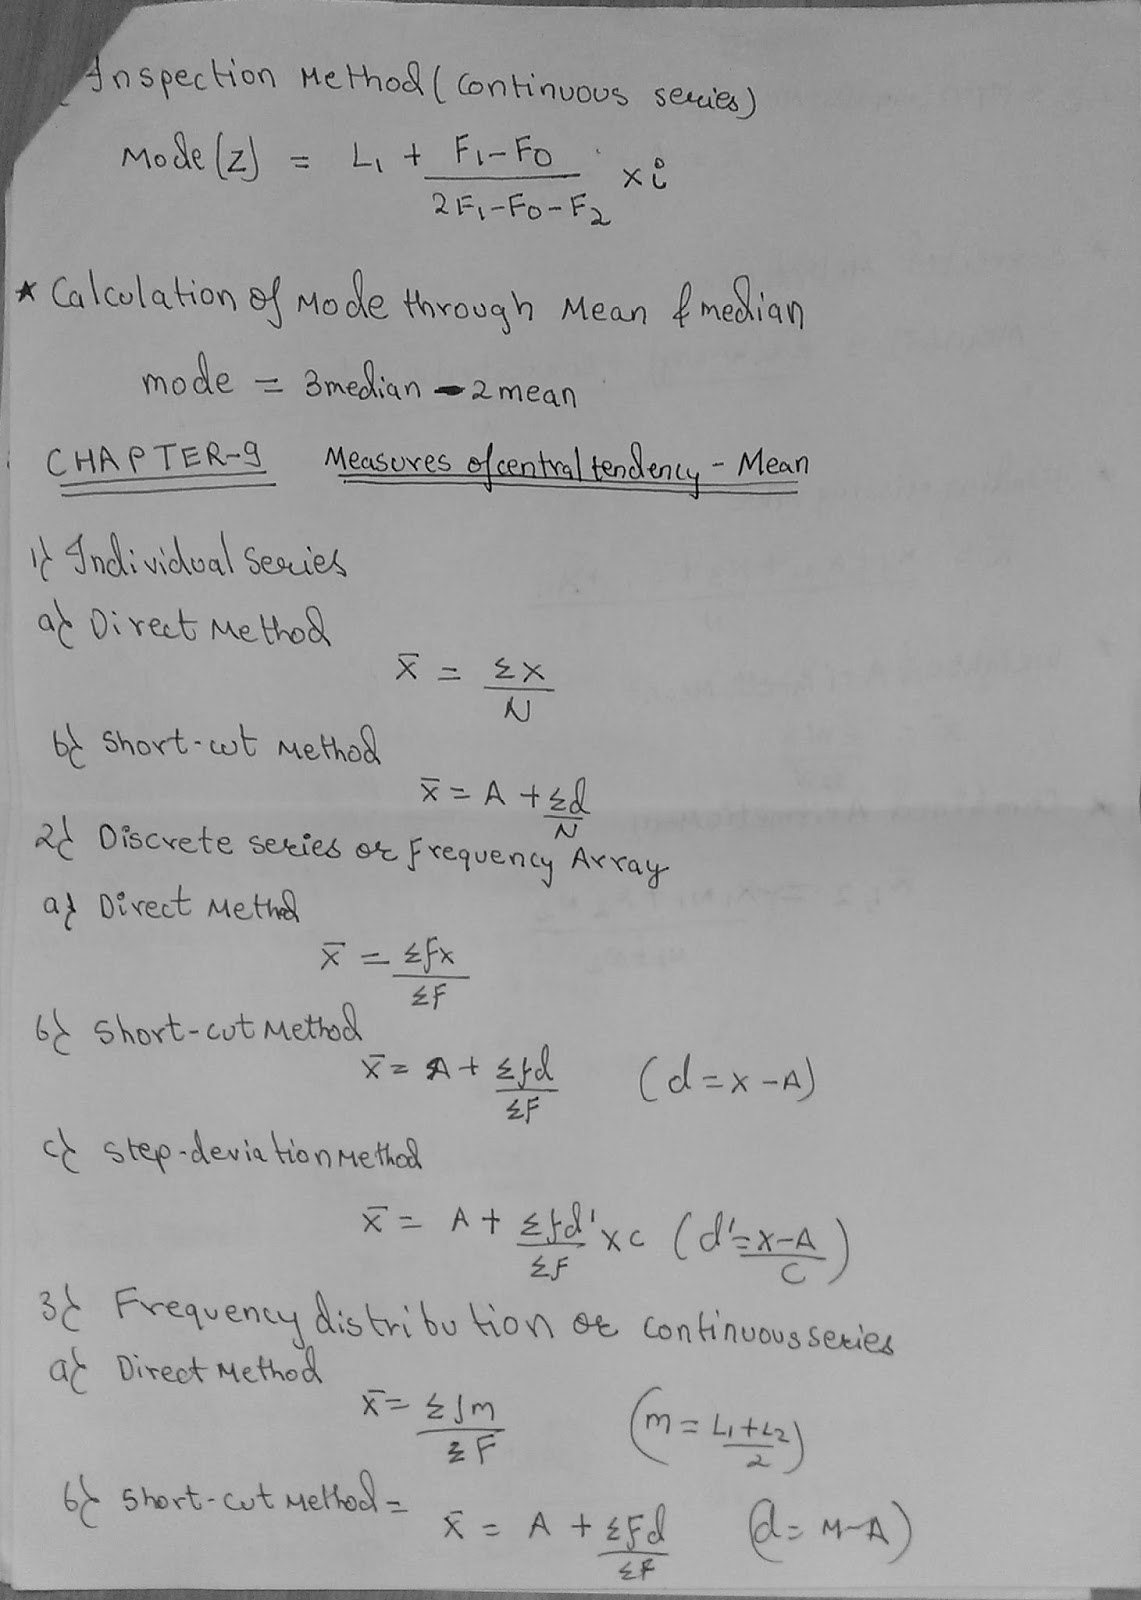 Inspection Method (Continuous series)
Mode (Z) = L₁ + (F₁-F0)/(2F₁-F0-F₂) × i
* Calculation of Mode through Mean & median
mode = 3median - 2 mean
CHAPTER-9 Measures of central tendency - Mean
1) Individual Series
a) Direct Method
x̄ = Σx/N
b) Short-cut Method
x̄ = A + Σd/N
2) Discrete series or frequency Array
a) Direct Method
x̄ = Σfx/ΣF
b) Short-cut Method
x̄ = A + Σfd/ΣF (d = x - A)
c) Step-deviation Method
x̄ = A + Σfd'/ΣF × c (d' = x-A/C)
3) Frequency distribution or continuous series
a) Direct Method
x̄ = Σfm/ΣF (m = L₁+L₂/2)
b) Short-cut Method =
x̄ = A + ΣFd/ΣF (d = M-A)